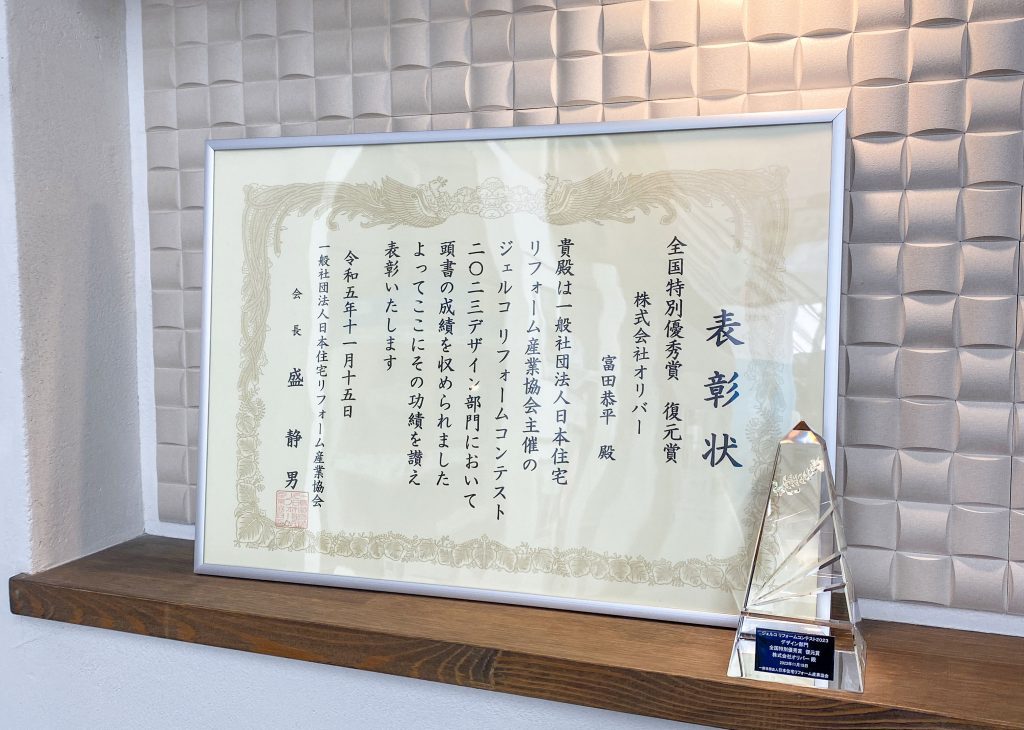 表彰状
全国特別優秀賞 復元賞
株式会社オリバー
富田恭平 殿
貴殿は一般社団法人日本住宅
リフォーム産業協会主催の
ジェルコ リフォームコンテスト
二〇二三デザイン部門において
頭書の成績を収められました
よってここにその功績を讃え
表彰いたします
令和五年十一月十五日
一般社団法人日本住宅リフォーム産業協会
会長 盛静男
ジェルコ リフォームコンテスト2023
デザイン部門
全国特別優秀賞 復元賞
株式会社オリバー 殿
2023年11月15日
一般社団法人日本住宅リフォーム産業協会